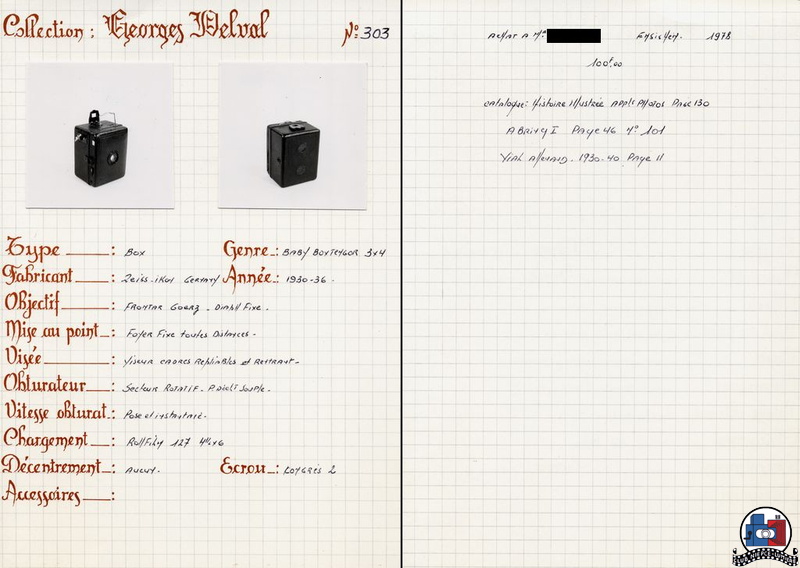 Collection : Georges Delval N° 303
Type : Box Genre : BABY BOXTENGOR 3x4
Fabricant : Zeiss-IKON GERMANY Année : 1930-36.
Objectif : FRONTAR GOERZ - Diaph Fixe.
Mise au point : Foyer Fixe toutes Distances.
Visée : Viseur CADRES Repliables et Rentrant.
Obturateur : Secteur ROTATIF.
Vitesse obturat. : Pose et instantané.
Chargement : RollFilm 127 4x6
Décentrement : AUCUN. Ecrou : CONGRES 2
Accessoires :
ACHAT A Mr 1978
100F.00
catalogue: Histoire illustrée APPts PHOTOS PAGE 130
ABRING I PAGE 46 N° 101
VIAL 1930-40 PAGE 11